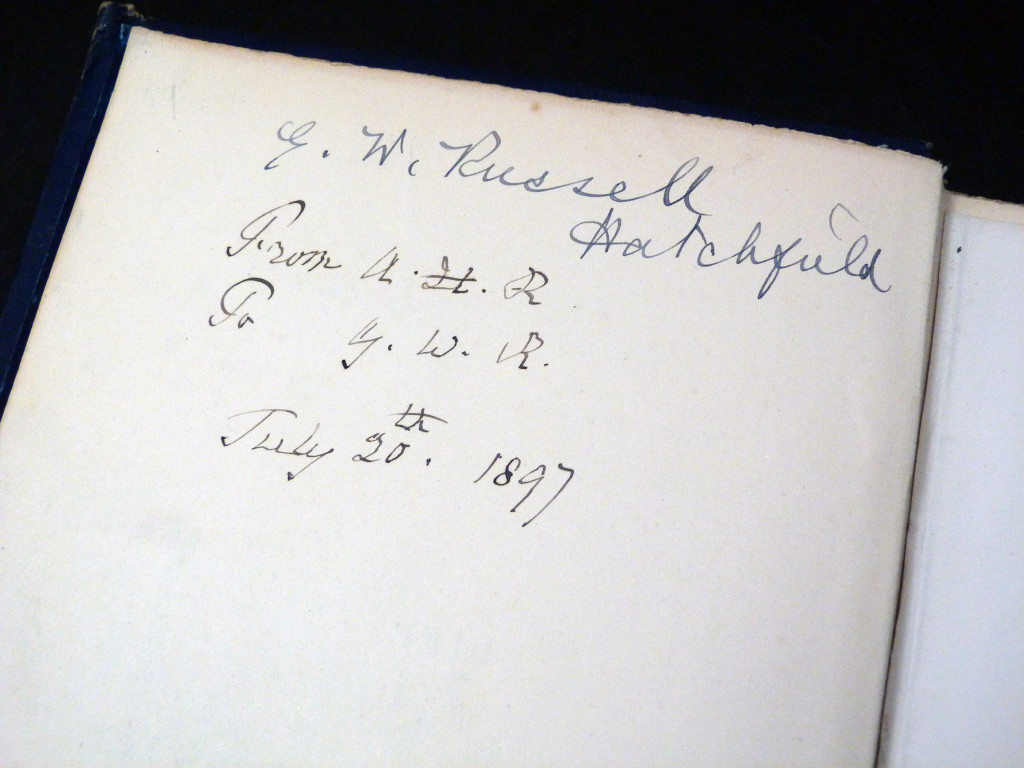 G. W. Russell
Hatchfield
From A. H. R
To G. W. R.
July 20th. 1897